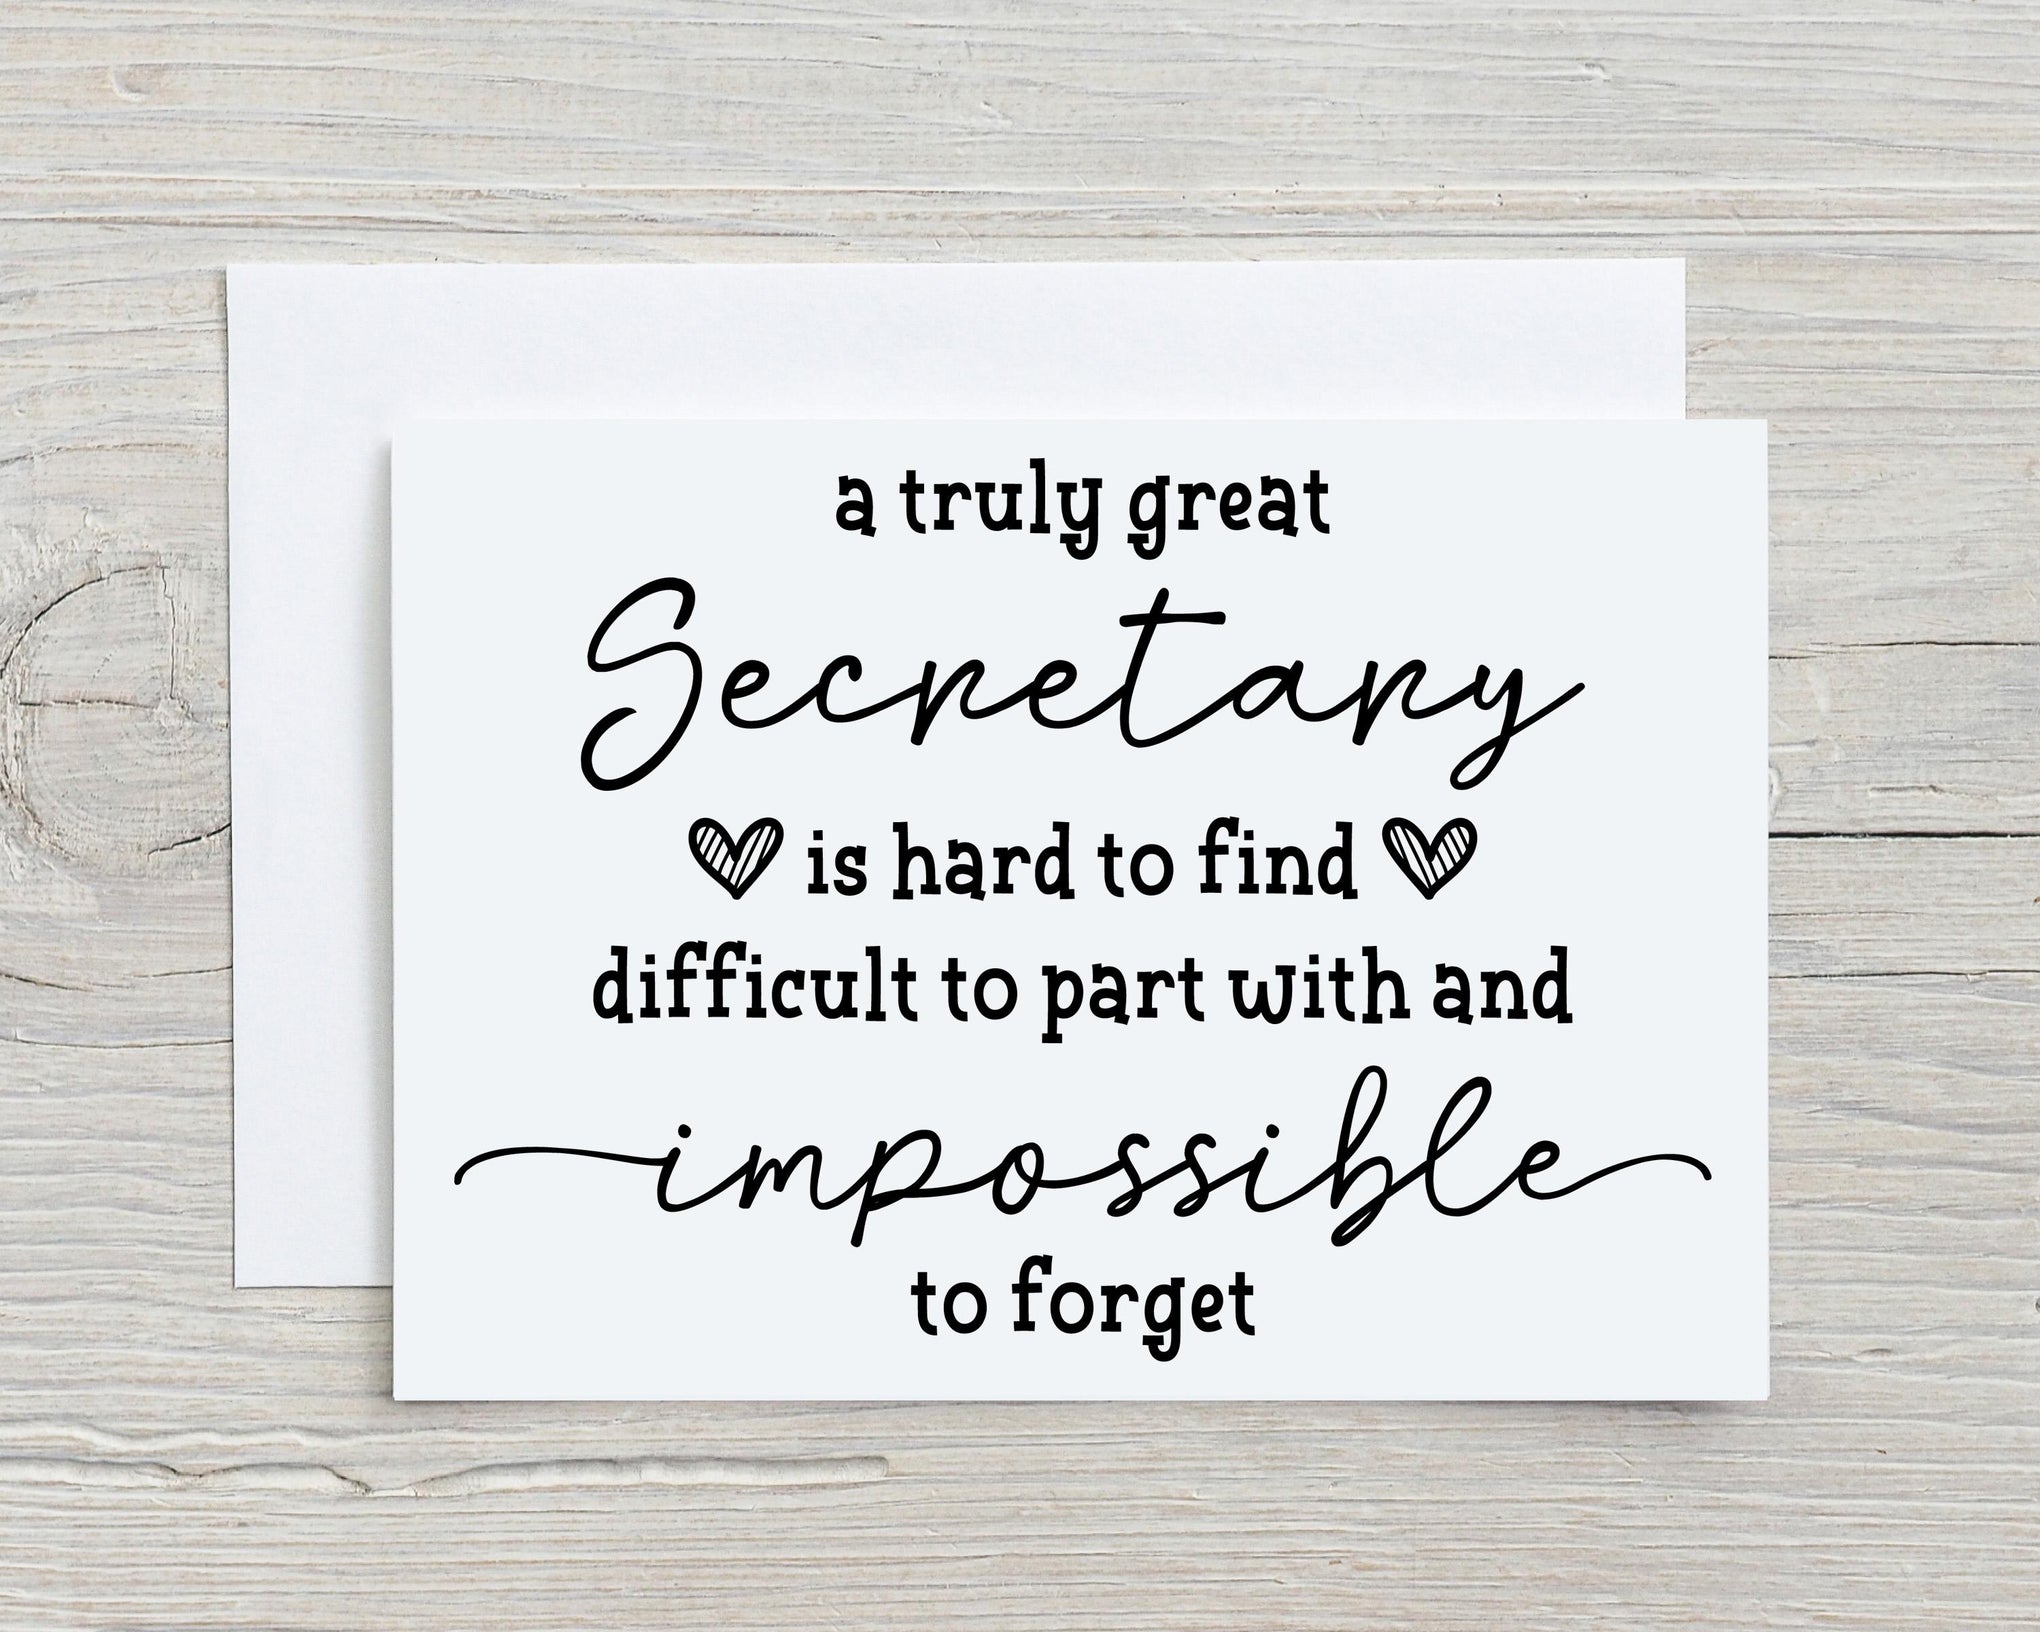 a truly great
Secretary
is hard to find
difficult to part with and
impossible
to forget